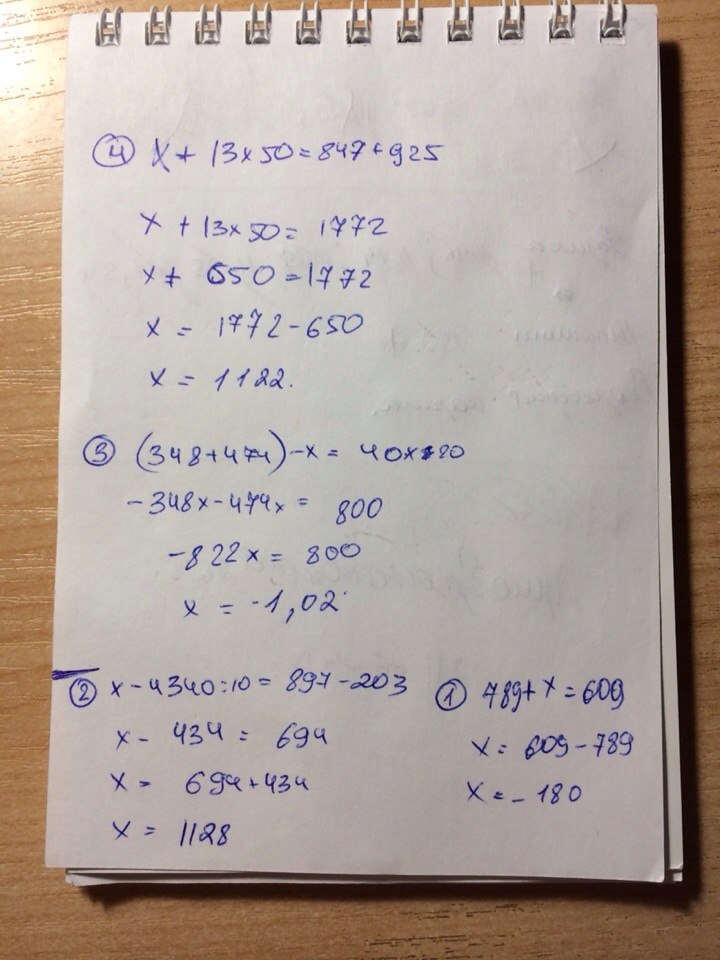 ④ x + 13 x 50 = 847 + 925
x + 13 x 50 = 1772
x + 650 = 1772
x = 1772 - 650
x = 1122.
③ (348 + 474) - x = 40 x 20
- 348x - 474x = 800
- 822x = 800
x = -1,02
② x - 4340 : 10 = 897 - 203
x - 434 = 694
x = 694 + 434
x = 1128
① 789 + x = 609
x = 609 - 789
x = - 180